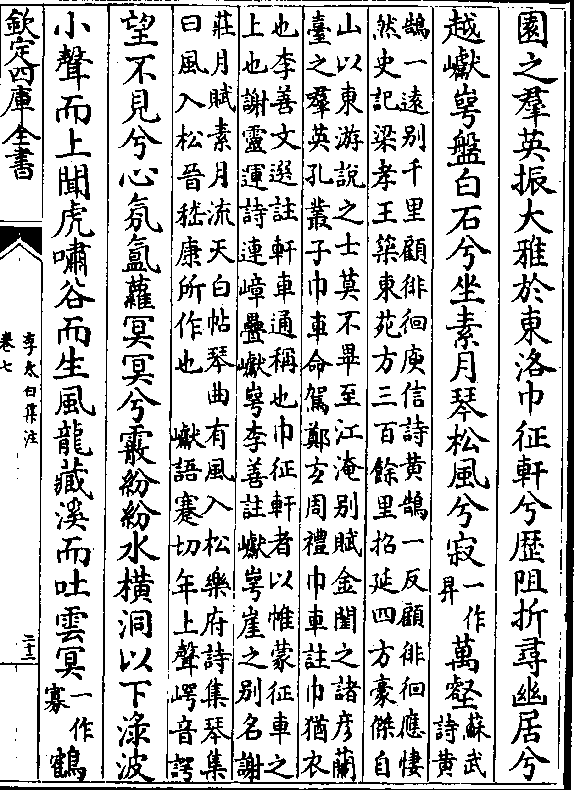 園之羣英振大雅於東洛巾征軒兮歷阻折尋幽居兮
越巘崿盤白石兮坐素月琴松風兮寂一作昇萬壑蘇武詩黄
鵠一遠别千里顧徘徊庾信詩黄鵠一反顧徘徊應悽
然史記梁孝王築東苑方三百餘里招延四方豪傑自
山以東游說之士莫不畢至江淹别賦金閨之諸彦蘭
臺之羣英孔叢子巾車命駕鄭玄周禮巾車註巾猶衣
也李善文選註軒車通稱也巾征軒者以帷蒙征車之
上也謝靈運詩連嶂疊巘崿李善註巘崿崖之别名謝
莊月賦素月流天白帖琴曲有風入松樂府詩集琴集
曰風入松晉嵇康所作也　巘語蹇切年上聲崿音諤
望不見兮心氛氲蘿冥冥兮霰紛紛水横洞以下渌波
小聲而上聞虎嘯谷而生風龍藏溪而吐雲冥一作寡鶴
欽定四庫全書
李太白集注
卷七
二十三